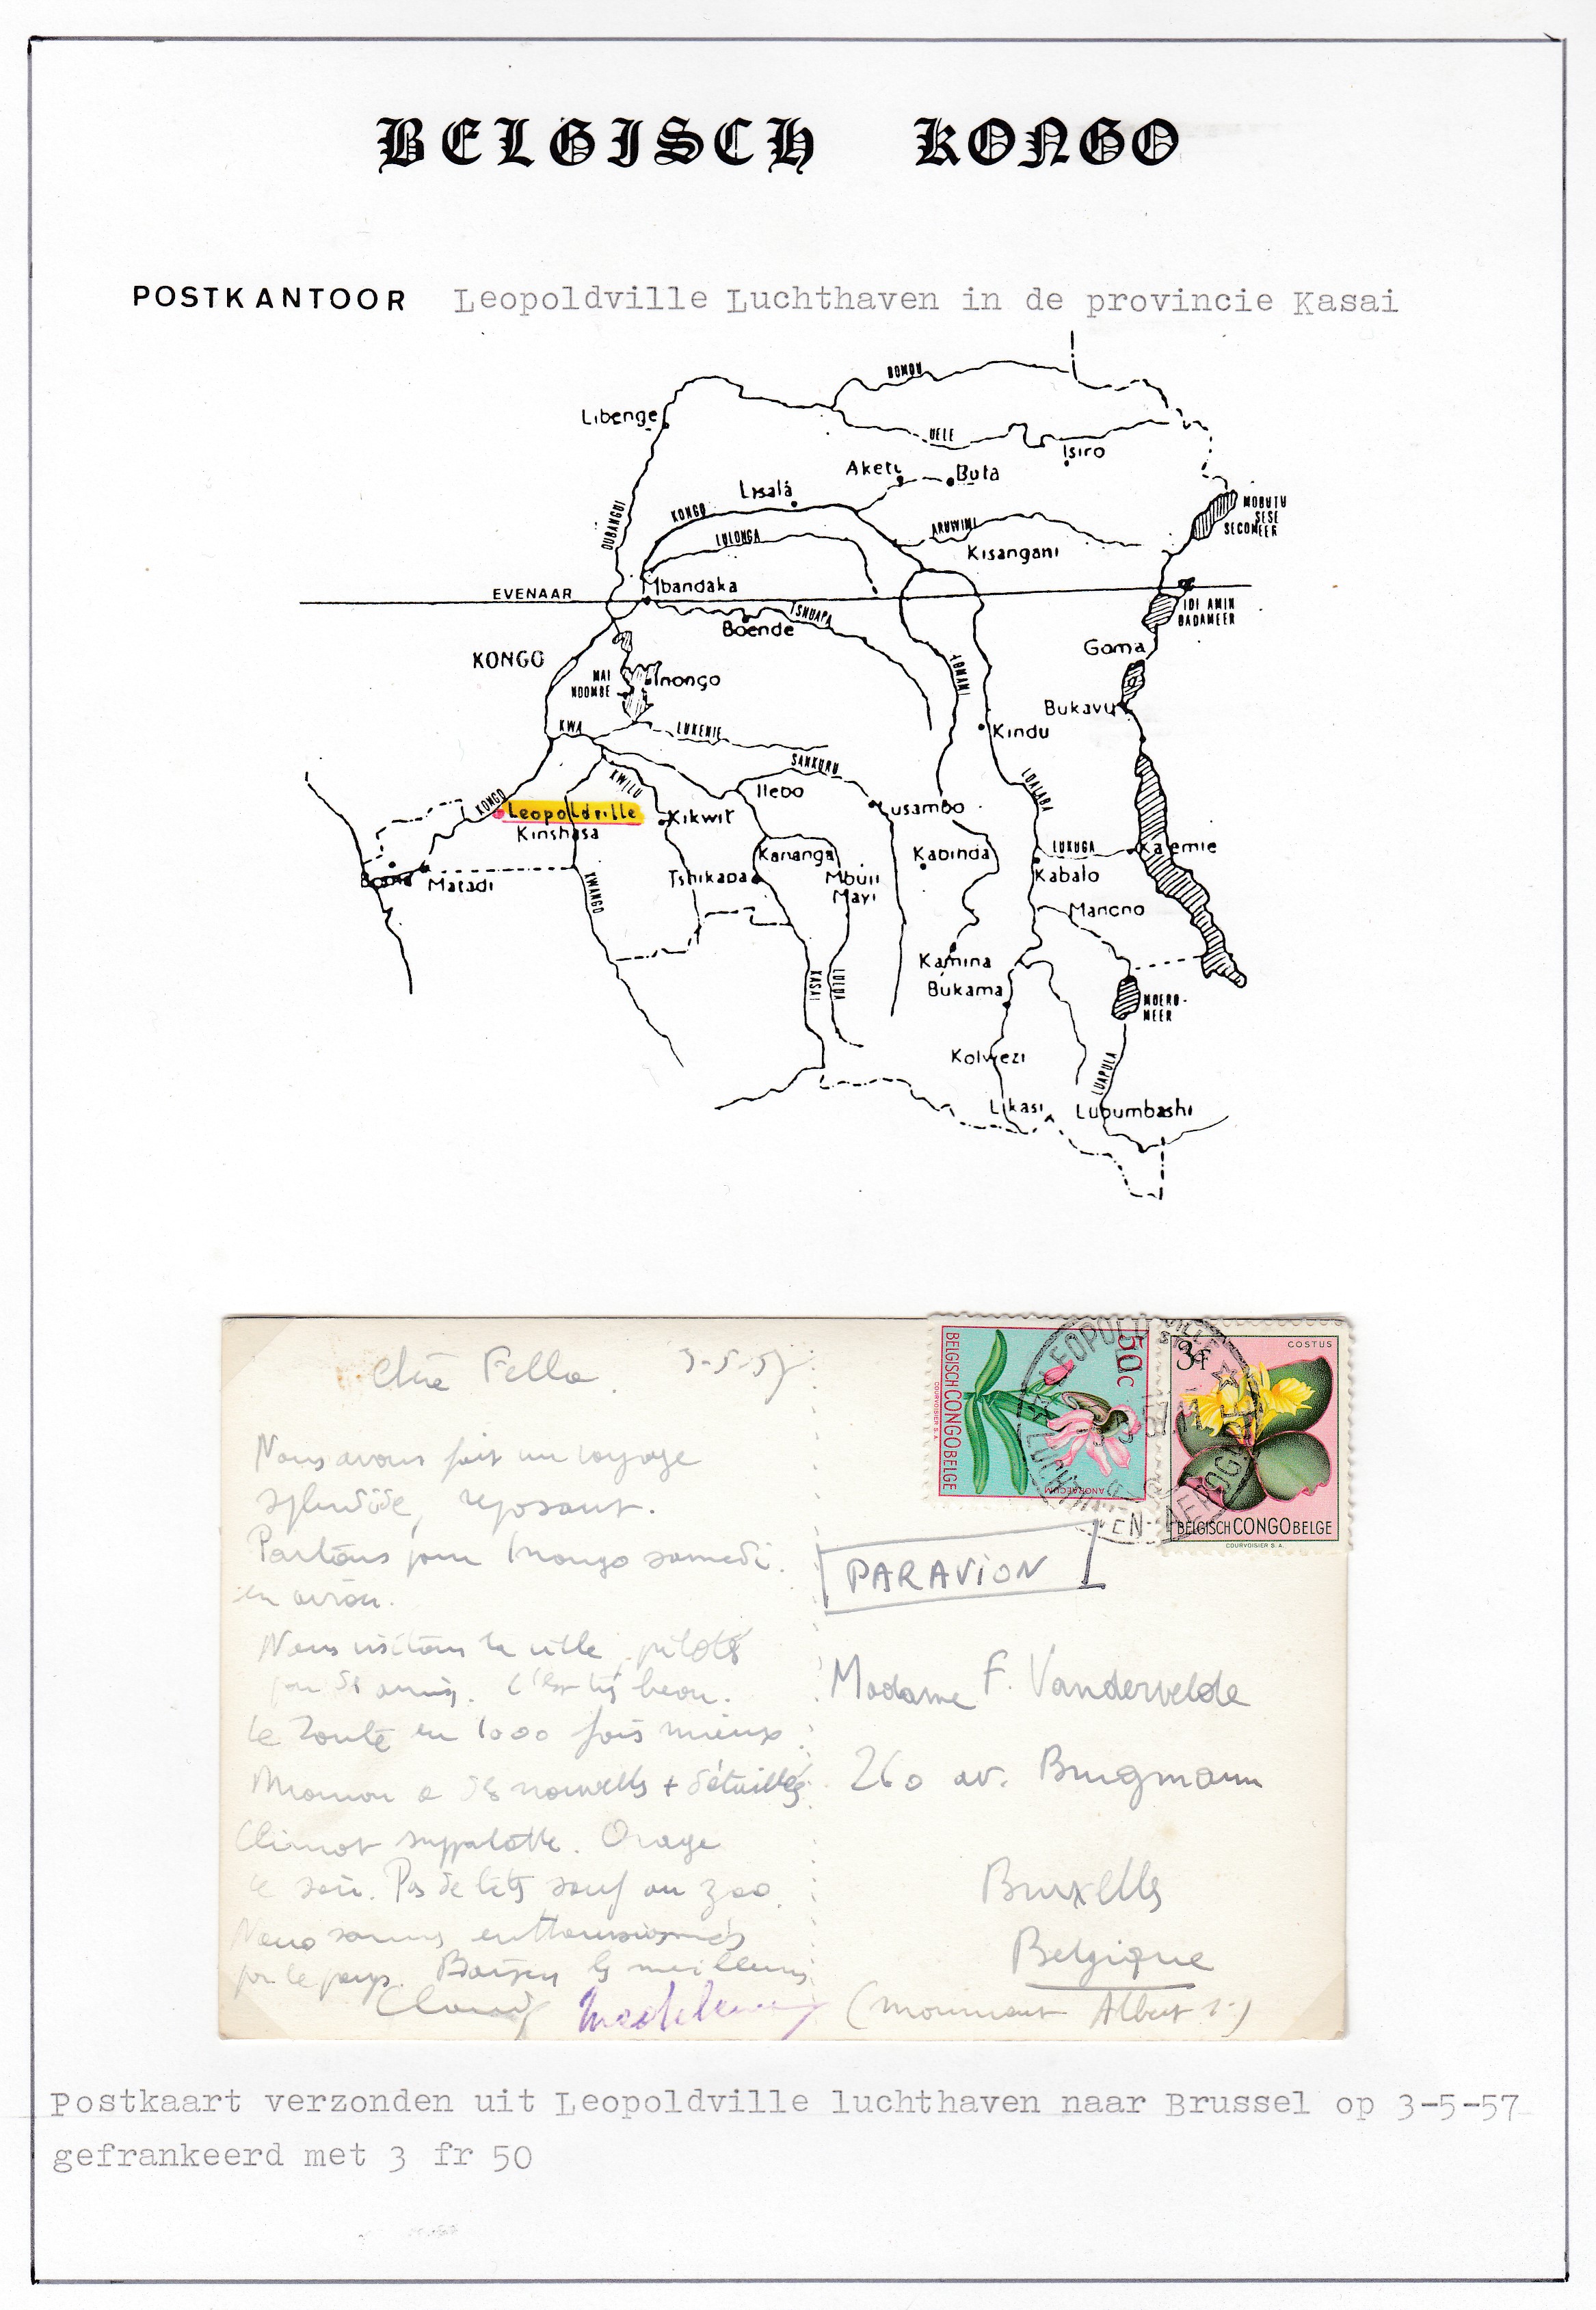 BELGISCH KONGO
POSTKANTOOR Leopoldville Luchthaven in de provincie Kasai
BOMU
Libenge
UELE
Isiro
Aketi
Buta
Lisala
MOBUTU
SESE
SECOMEER
OUBANGUI
KONGO
ARUWIMI
LULONGA
Kisangani
EVENAAR
Mbandaka
IDI AMIN
DADAMEER
TSHUAPA
Boende
Goma
KONGO
LOMAMI
MAI
NDOMBE
Inongo
Bukavu
KWA
LUKENIE
Kindu
SANKURU
KWILU
Ilebo
LUALABA
KONGO
Leopoldville
Kikwit
Lusambo
Kinshasa
Kananga
Kabinda
LUKUGA
Kalemie
Boma
Matadi
KWANGO
Tshikapa
Mbuji
Mayi
Kabalo
Manono
Kamina
KASAI
LULUA
Bukama
MOERO-
MEER
Kolwezi
LUAPULA
Likasi
Lubumbashi
Chère Fella. 3-5-57
Nous avons fait un voyage
splendide, reposant.
Partons pour Inongo samedi
en avion.
Nous visitons la ville, pilotés
par des amis. C'est très beau.
Le Zoute en 1000 fois mieux
Maman a des nouvelles + détaillées
Climat supportable. Orage
le soir. Pas de bêtes sauf au zoo.
Nous sommes enthousiasmés
par le pays. Baisers les meilleurs
Claude Madeleine
50c
BELGISCH CONGO BELGE
COURVOISIER S.A.
ANGRAECUM
COSTUS
3f
BELGISCH CONGO BELGE
COURVOISIER S.A.
LEOPOLDVILLE
LUCHTHAVEN-AEROGARE
PAR AVION
Madame F. Vandervelde
260 av. Brugmann
Bruxelles
Belgique
(monument Albert 1er)
Postkaart verzonden uit Leopoldville luchthaven naar Brussel op 3-5-57
gefrankeerd met 3 fr 50